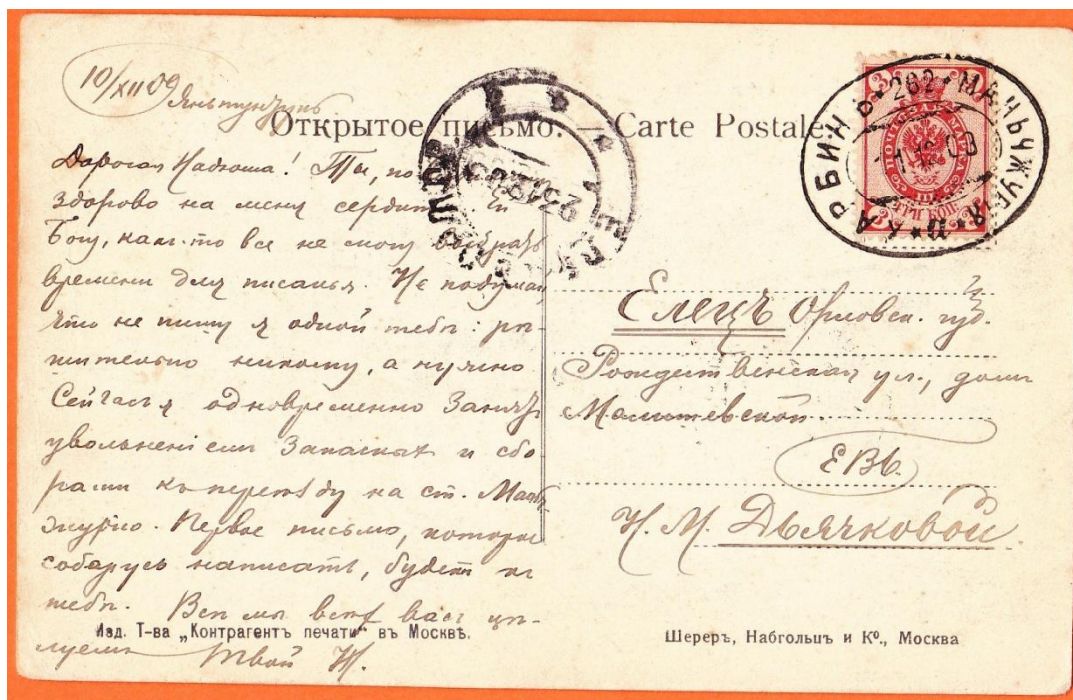 10/XII 09
Яньтунтунь
Открытое письмо. — Carte Postale.
3 ПОЧТОВАЯ МАРКА 3
ТРИ КОП.
ХАРБИНЪ * 262 * МАНЬЧЖУР
ЕЛЕЦЪ
Дорогая Надюша! Ты,
здорово на меня сердит Ей
Богу, какъ-то все не могу выбрать
времени для писанья. Не подумай,
что не пишу я одной тебѣ: рѣ-
шительно никому, а нужно
Сейчасъ я одновременно занятъ
увольненіемъ запасныхъ и сбо-
рами къ переѣзду на ст. Мань-
журію. Первое письмо, которое
соберусь написать, будетъ къ
тебѣ. Всѣ мы всѣхъ васъ цѣ-
луемъ Твой Н.
Елецъ Орловск. губ.
Рождественская ул., домъ
Малышевской.
ЕВБ.
Н. М. Дьячковой.
Изд. Т-ва „Контрагентъ печати“ въ Москвѣ.
Шереръ, Набгольцъ и Кº., Москва